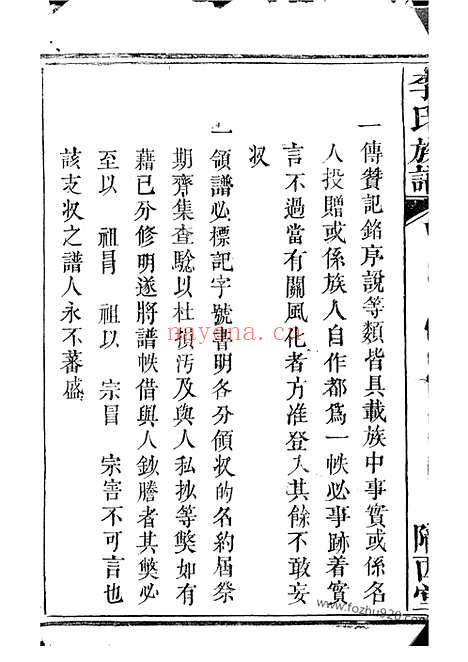 李氏族譜
隴西堂
一傳贊記銘序說等類皆具載族中事實或係名
人投贈或係族人自作都爲一帙必事跡着實
言不過當有關風化者方准登入其餘不敢妄
收
一領譜必標記字號書明各分領收的名約屆祭
期齊集查驗以杜損汚及與人私抄等獘如有
藉已分修明遂將譜帙借與人鈔謄者其獘必
至以 祖冐 祖以 宗冒 宗害不可言也
該支收之譜人永不蕃盛
nayona.cn
www.fozhu920.com